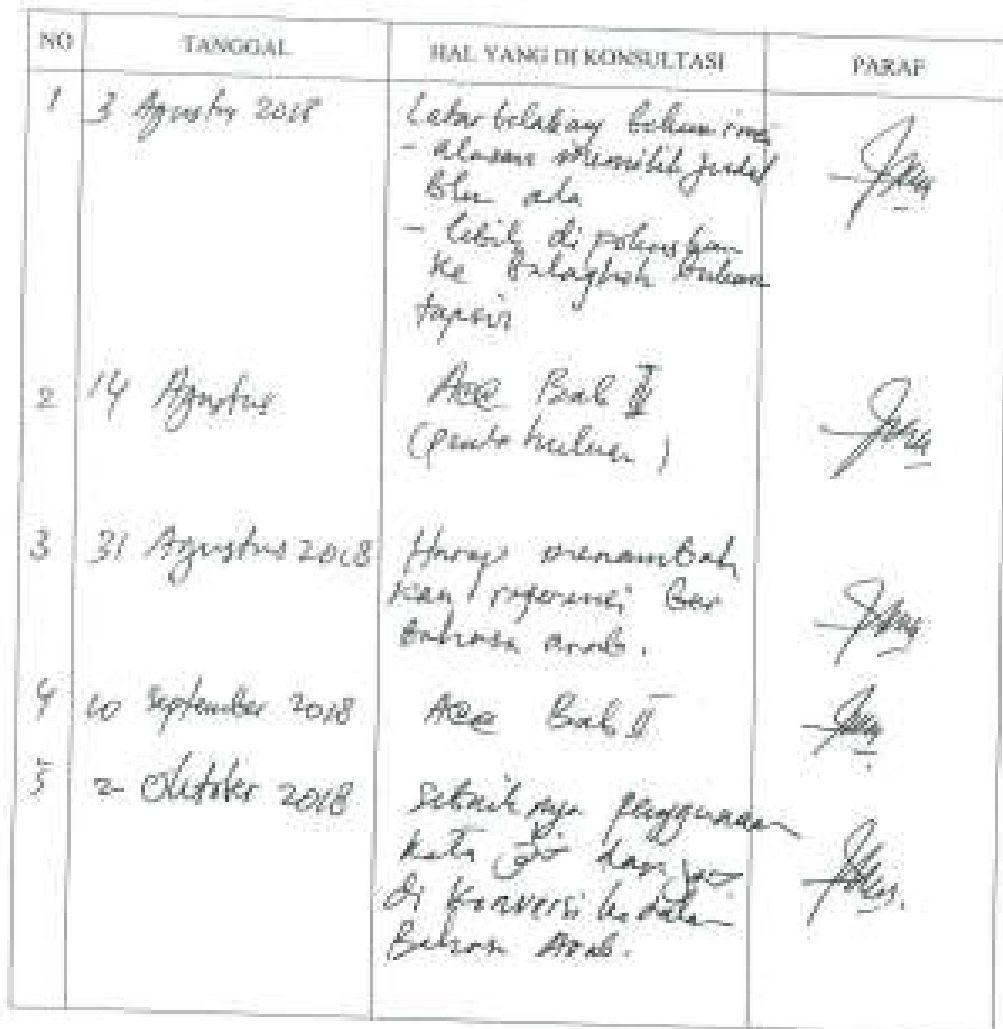 NO TANGGAL HAL YANG DI KONSULTASI PARAF
1 3 Agustus 2018 Latar belakang belum rinci
- alasan memilih judul
blm ada
- lebih di pokuskan
ke Balaghoh bukan
tapsir
2 14 Agustus Acc Bab I
(pendahuluan)
3 31 Agustus 2018 Harap menambah
kan reperensi ber
bahasa arab.
4 10 September 2018 Acc Bab II
5 2 Oktober 2018 Sebaiknya penggunaan
kata dan
di konversi ke dalam
Bahasa Arab.